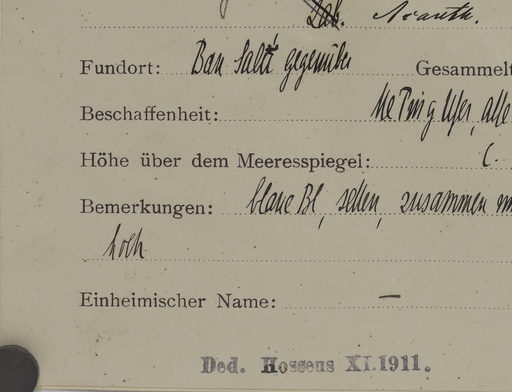 Lab. Acanth.
Fundort: Ban Salé gegenüber Gesammelt
Beschaffenheit: Me Ping Ufer, alle
Höhe über dem Meeresspiegel: c.
Bemerkungen: blaue Bl, selten, zusammen
hoch
Einheimischer Name: —
Ded. Hosseus XI.1911.